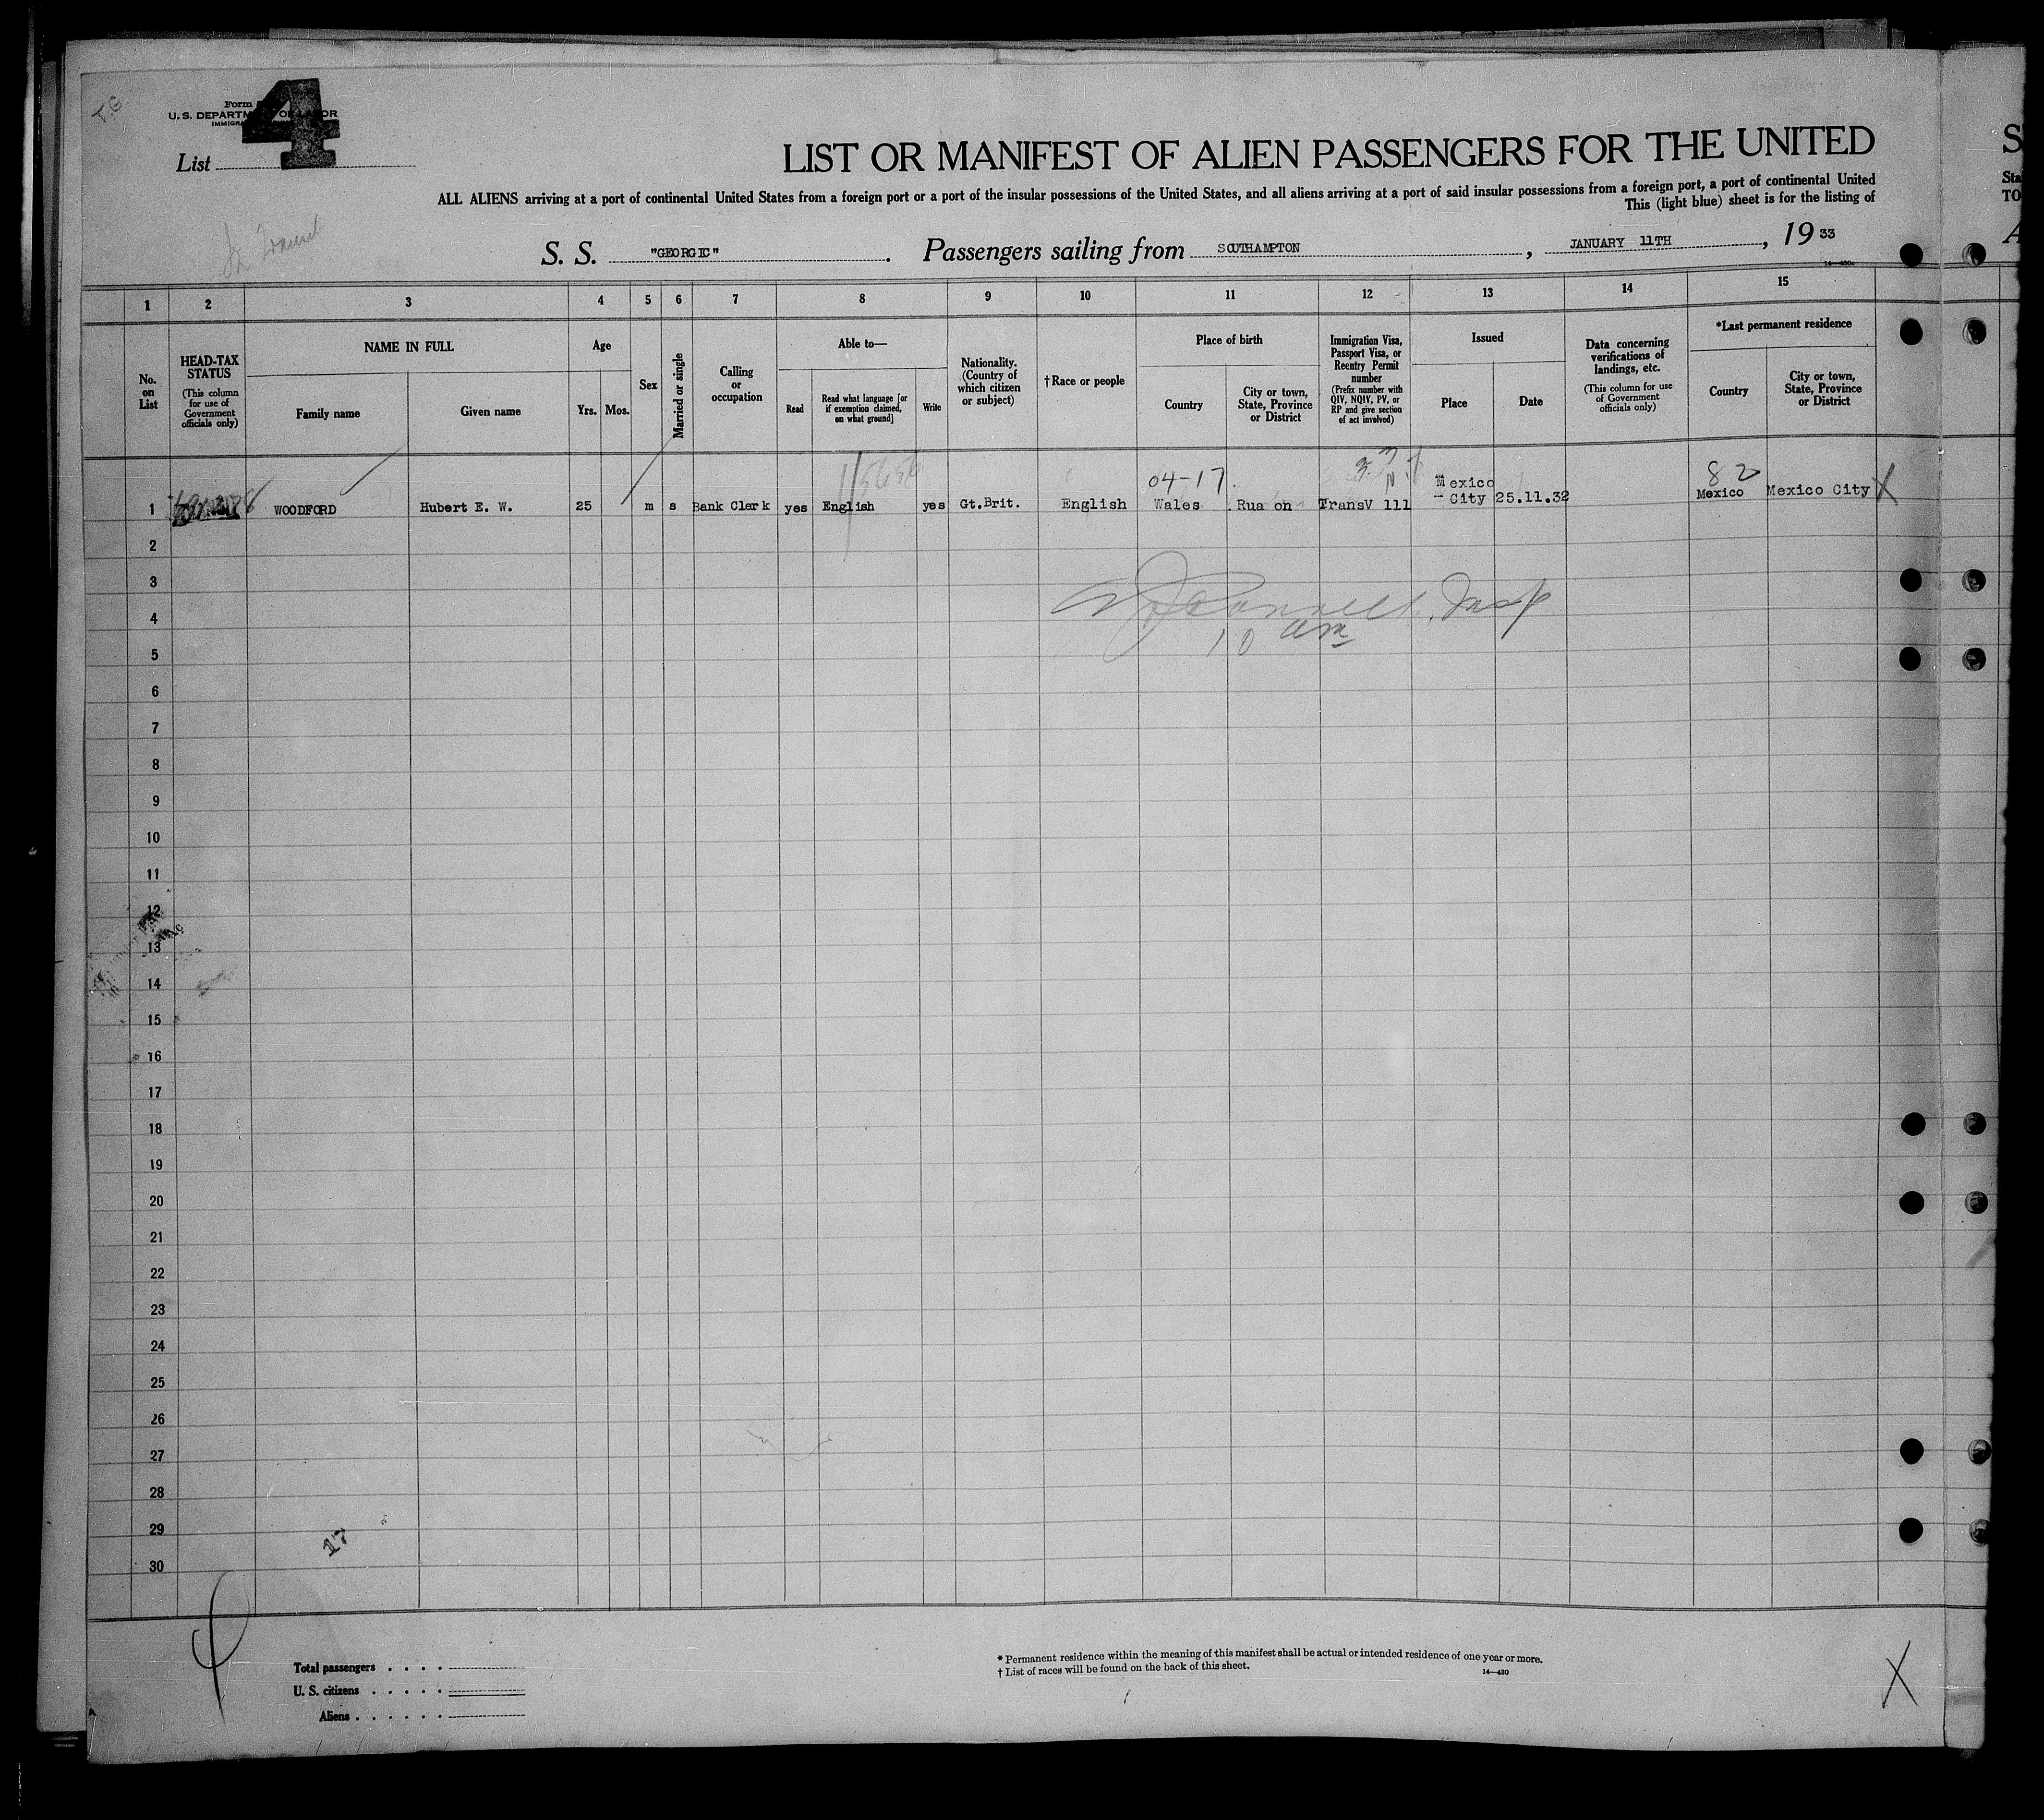 4
Form
U. S. DEPARTMENT OF LABOR
List
LIST OR MANIFEST OF ALIEN PASSENGERS FOR THE UNITED
ALL ALIENS arriving at a port of continental United States from a foreign port or a port of the insular possessions of the United States, and all aliens arriving at a port of said insular possessions from a foreign port, a port of continental United
This (light blue) sheet is for the listing of
S. S. "GEORGIC". Passengers sailing from SOUTHAMPTON, JANUARY 11TH, 19 33
1 2 3 4 5 6 7 8 9 10 11 12 13 14 15
No. on List
HEAD-TAX STATUS (This column for use of Government officials only)
NAME IN FULL
Family name
Given name
Age
Yrs. Mos.
Sex
Married or single
Calling or occupation
Able to—
Read
Read what language [or if exemption claimed, on what ground]
Write
Nationality. (Country of which citizen or subject)
†Race or people
Place of birth
Country
City or town, State, Province or District
Immigration Visa, Passport Visa, or Reentry Permit number (Prefix number with QIV, NQIV, PV, or RP and give section of act involved)
Issued
Place
Date
Data concerning verifications of landings, etc. (This column for use of Government officials only)
*Last permanent residence
Country
City or town, State, Province or District
04-17
82
1 WOODFORD Hubert E. W. 25 m s Bank Clerk yes English yes Gt.Brit. English Wales Rua on TransV 111 Mexico City 25.11.32 Mexico Mexico City X
2
3
4
10 am
5
6
7
8
9
10
11
12
13
14
15
16
17
18
19
20
21
22
23
24
25
26
27
28
29
17
30
Total passengers . . . .
U. S. citizens . . . . .
Aliens . . . . . .
* Permanent residence within the meaning of this manifest shall be actual or intended residence of one year or more.
† List of races will be found on the back of this sheet.
14—430
X